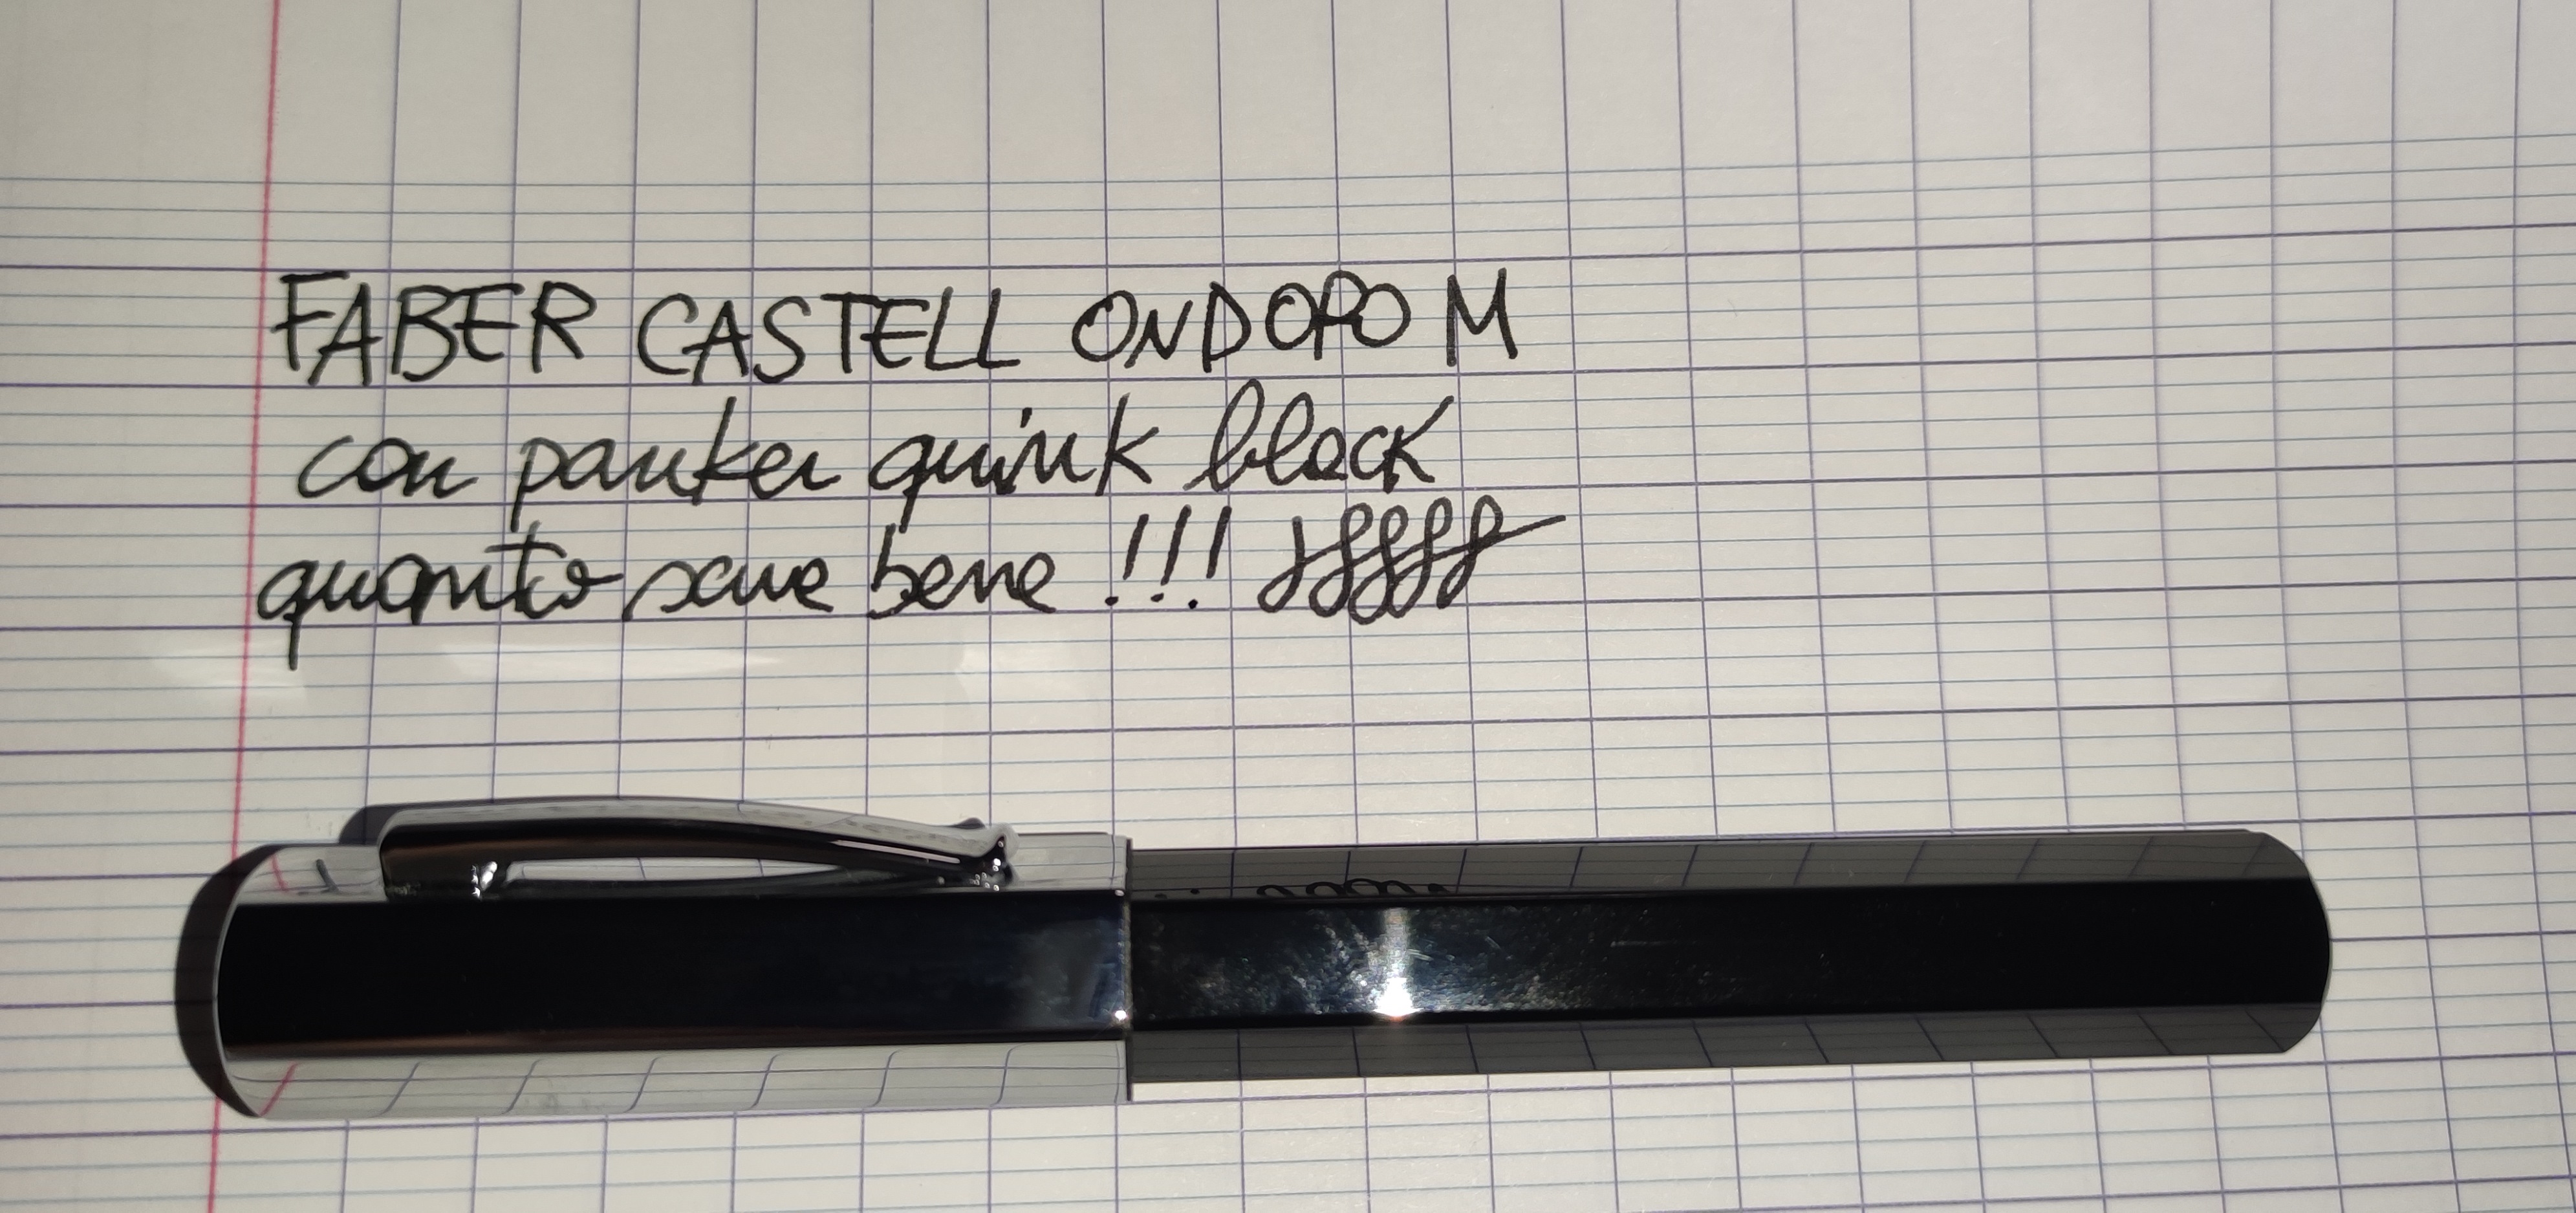 FABER CASTELL ONDORO M
con parker quink black
quanto scrive bene !!!